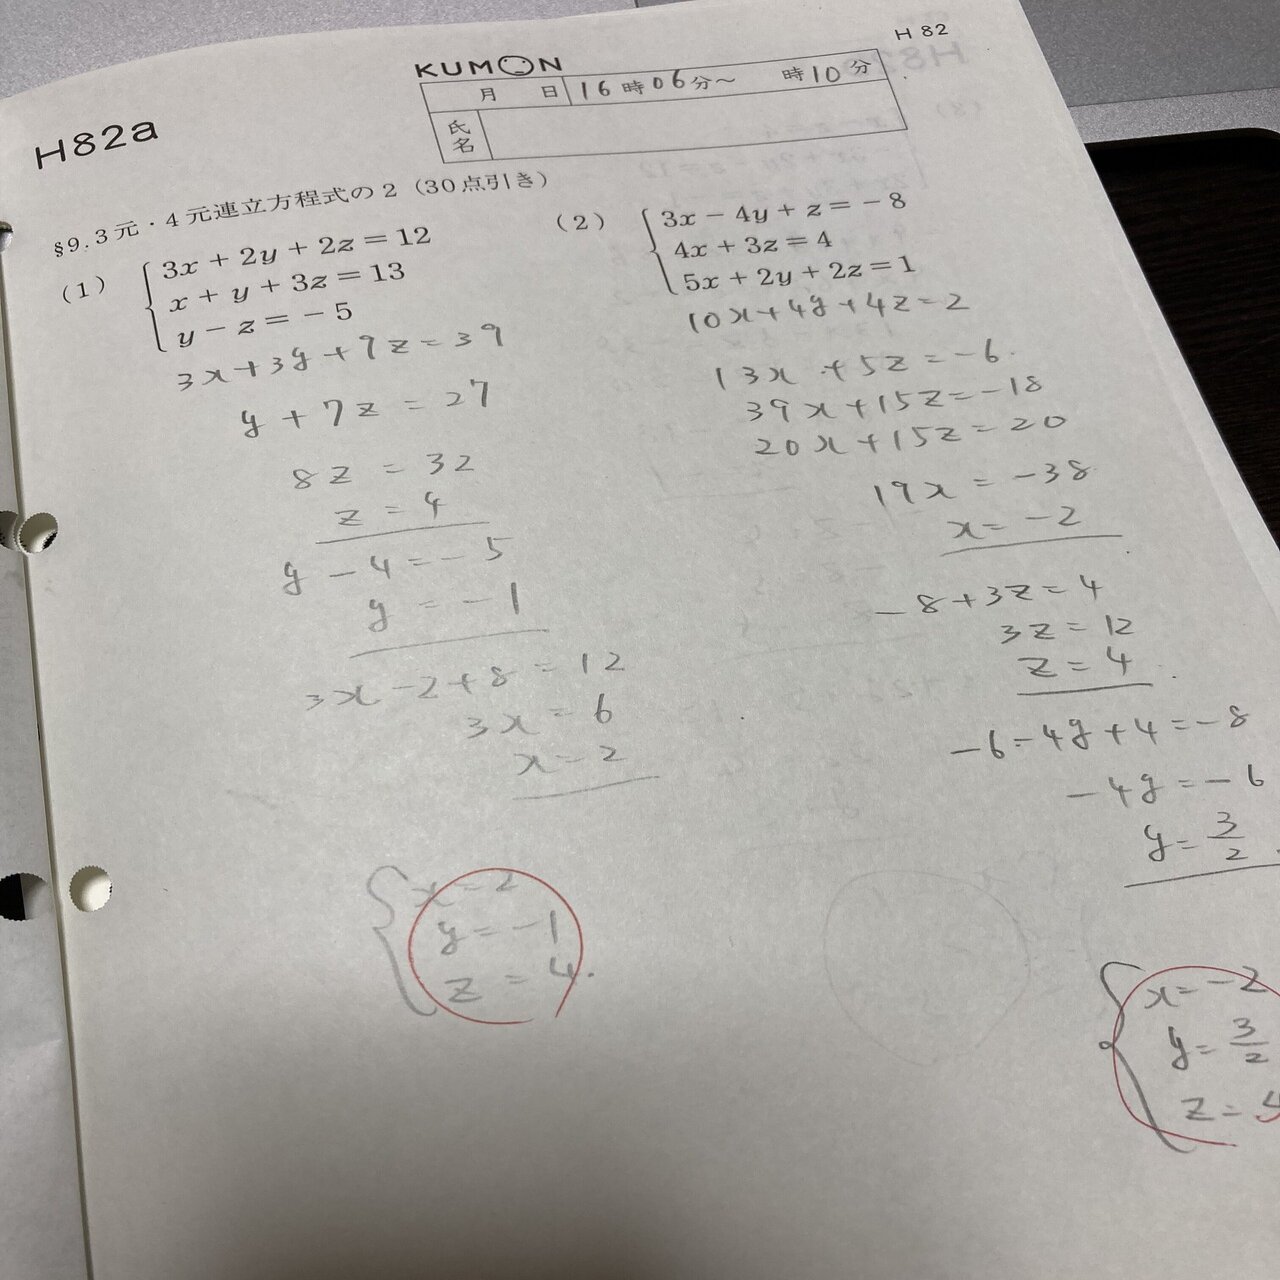 H 82
KUMON
月 日 16時06分～ 時10分
氏名
H82a
§9.3元・4元連立方程式の2（30点引き）
(1)
3x + 2y + 2z = 12
x + y + 3z = 13
y − z = − 5
3x+3y+9z=39
y + 7z = 27
8z = 32
z = 4
y − 4 = − 5
y = −1
3x − 2 + 8 = 12
3x = 6
x = 2
x = 2
y = −1
z = 4.
(2)
3x − 4y + z = − 8
4x + 3z = 4
5x + 2y + 2z = 1
10x+4y+4z=2
13x +5z=−6.
39x+15z=−18
20x+15z=20
19x = −38
x = −2
−8+3z=4
3z = 12
z = 4
−6−4y+4=−8
−4y=−6
y= 3/2
x=−2
y= 3/2
z=4